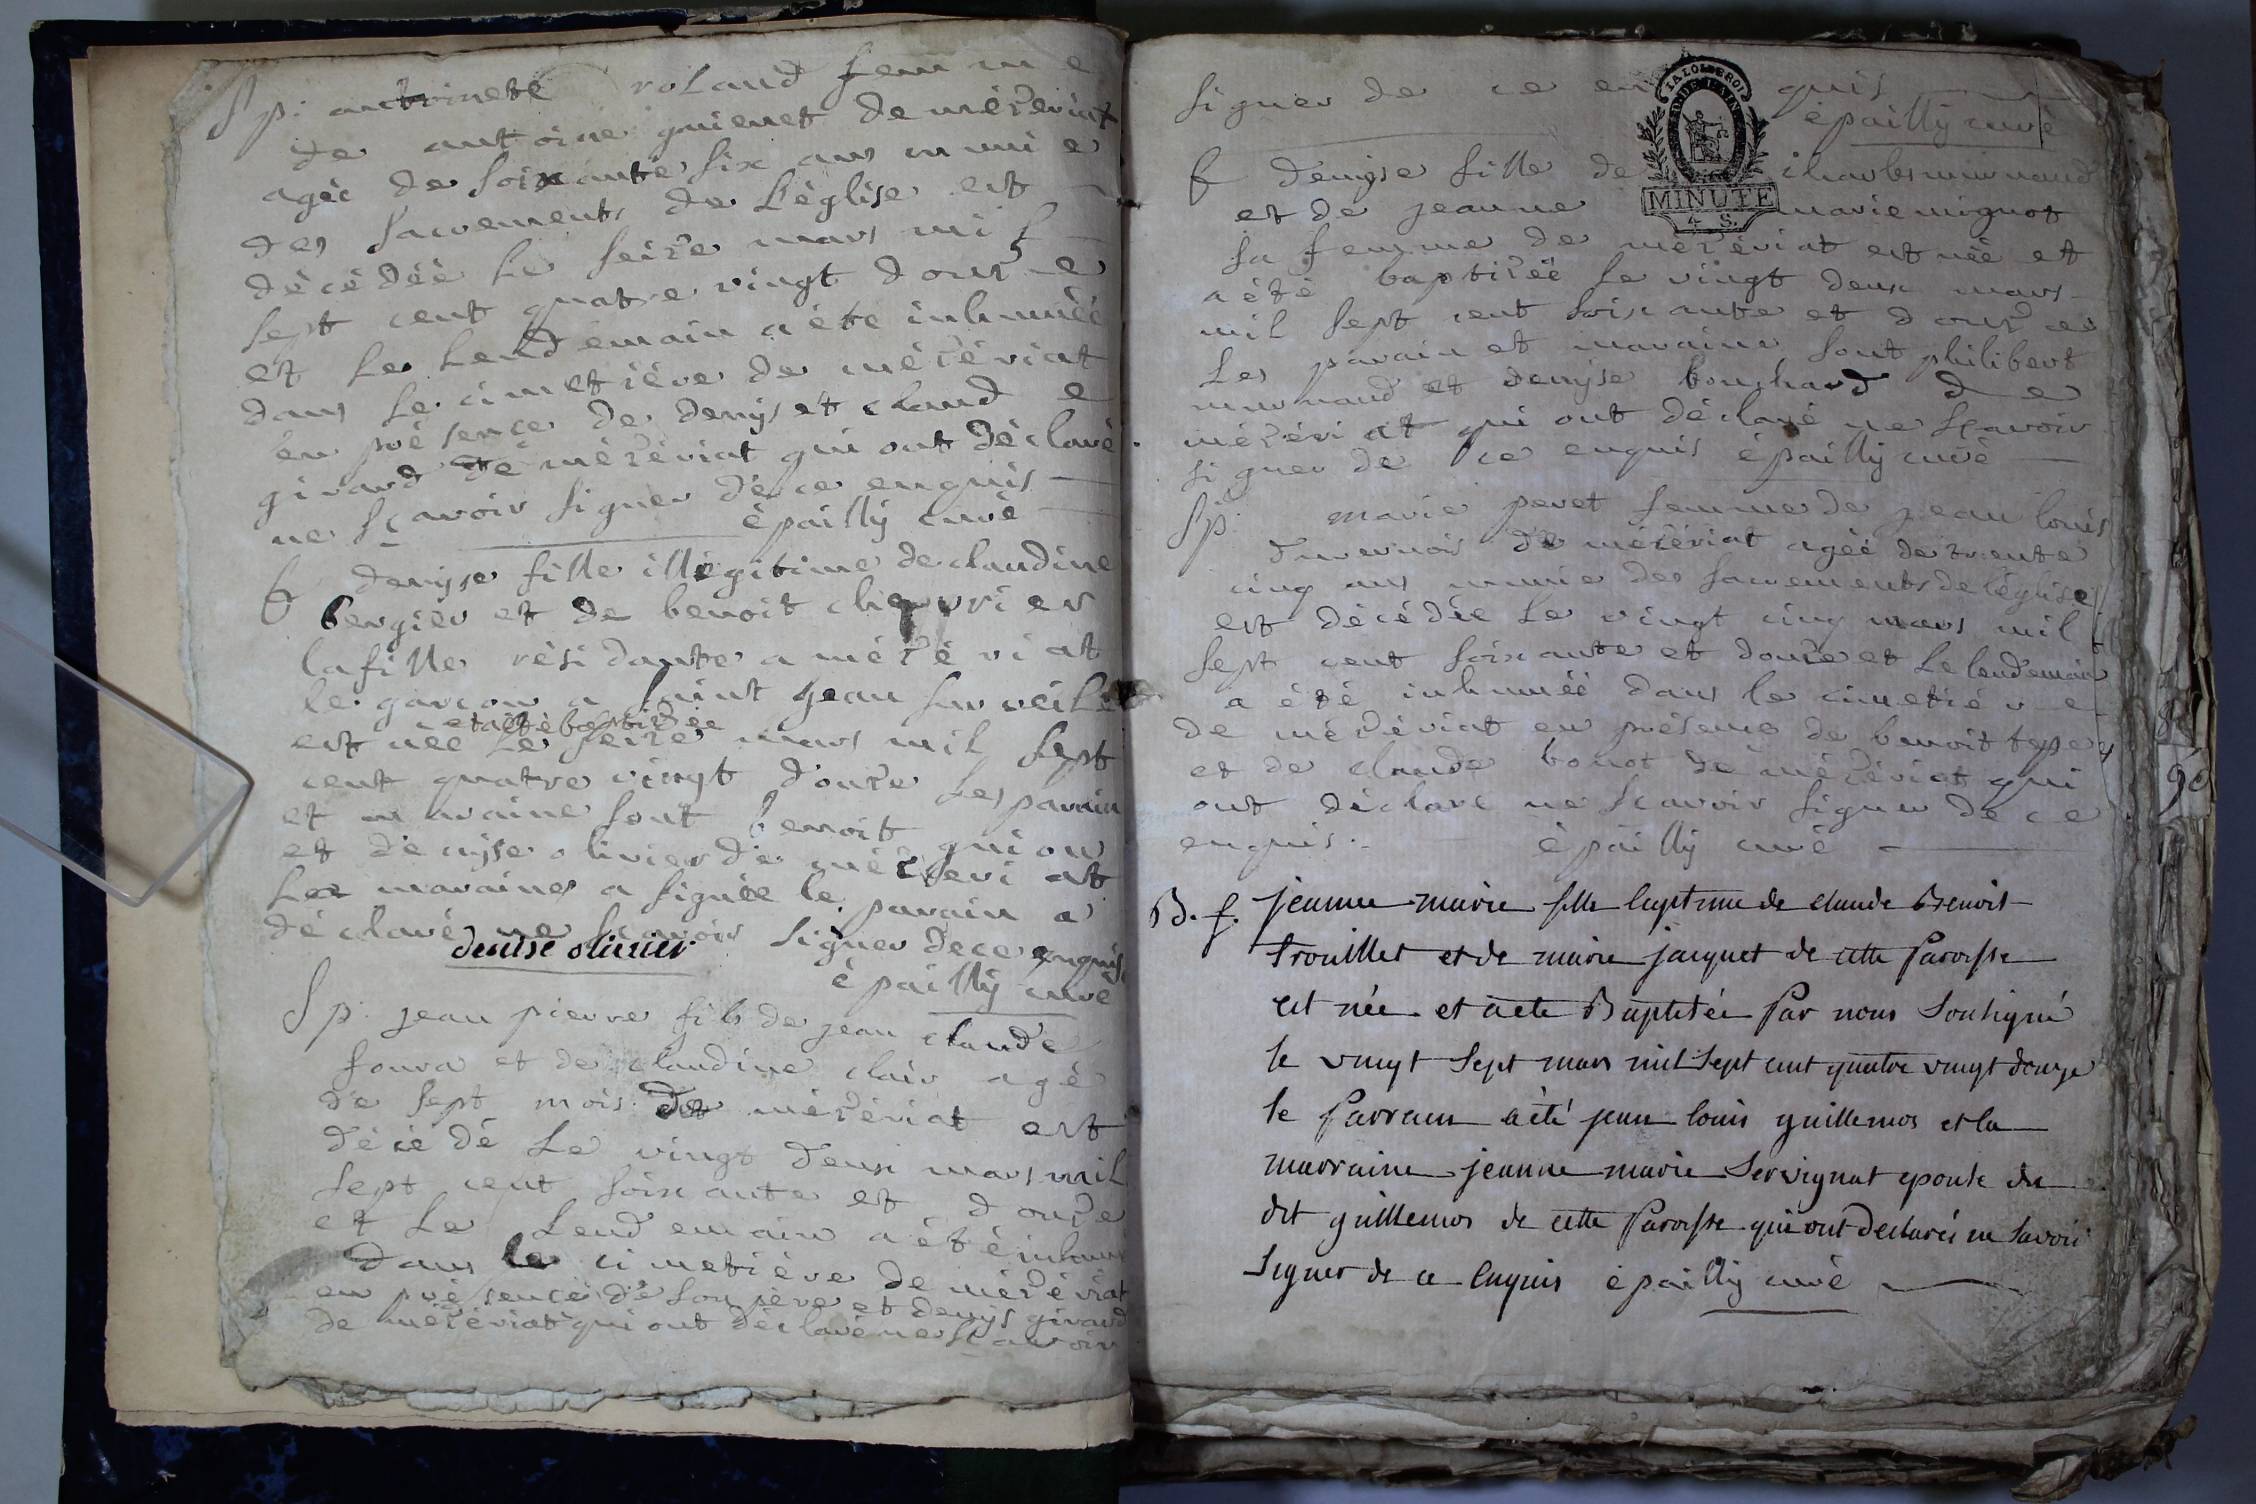 Sp: antoinete roland femme
de antoine guienet de mézériat
agéé de soixante six ans munie
des sacrements de L'église est
décédéé Le seize mars mil
sept cent quatre vingt douze
et Le Lendemain a été inhumée
dans Le cimetiére de mézériat
en présence de denys et claude
girard de mézériat qui ont déclaré
ne scavoir signer de ce enquis
épailly curé
b denyse fille illégitime de claudine
bergier et de benoit chevrier
la fille résidante a mézériat
le garcon a saint jean sur veile
et a été baptizée
est née Le seize mars mil sept
cent quatre vingt douze Les parain
et maraine sont benoit guion
et denyse olivier de mézeriat
La maraine a signée le parain a
déclaré ne scavoir signer de ce enquis
denise olivier
épailly curé
Sp: jean pierre fils de jean claude
foura et de claudine clair agé
de sept mois de mézériat est
décédé Le vingt deux mars mil
sept cent soixante et douze
et Le Lendemain a été inhumé
dans le cimetiére de mézériat
en présence de son pére et denys girard
de mézériat qui ont déclaré ne scavoir
signer de ce enquis
épailly curé
LA LOI LE ROI
MINUTE
4 S.
b denyse fille de charles murnaud
et de jeanne marie mignot
sa femme de mézériat est née et
a été baptizéé le vingt deux mars
mil sept cent soixante et douze
Les parain et maraine sont philibert
murnaud et denyse bouchard de
mézériat qui ont déclaré ne scavoir
signer de ce enquis épailly curé
Sp: marie peret femme de jean louis
duvernois de mézériat agéé de trente
cinq ans munie des sacrements de l'église
est décédée Le vingt cinq mars mil
sept cent soixante et douze et Le lendemain
a été inhuméé dans le cimetiére
de mézériat en présence de benoit
et de claude bonot de mézériat qui
ont déclaré ne scavoir signer de ce
enquis. épailly curé
B. f. jeanne marie fille legitime de claude Benoit
trouillet et de marie jacquet de cette Paroisse
est née et a ete Baptisée Par nous Soussigné
le vingt Sept mars mil Sept cent quatre vingt douze
le Parrain a été jean louis guillemos et la
marraine jeanne marie Servignat epouse du
dit guillemos de cette Paroisse qui ont declarés ne Savoir
Signer de ce Enquis épailly curé